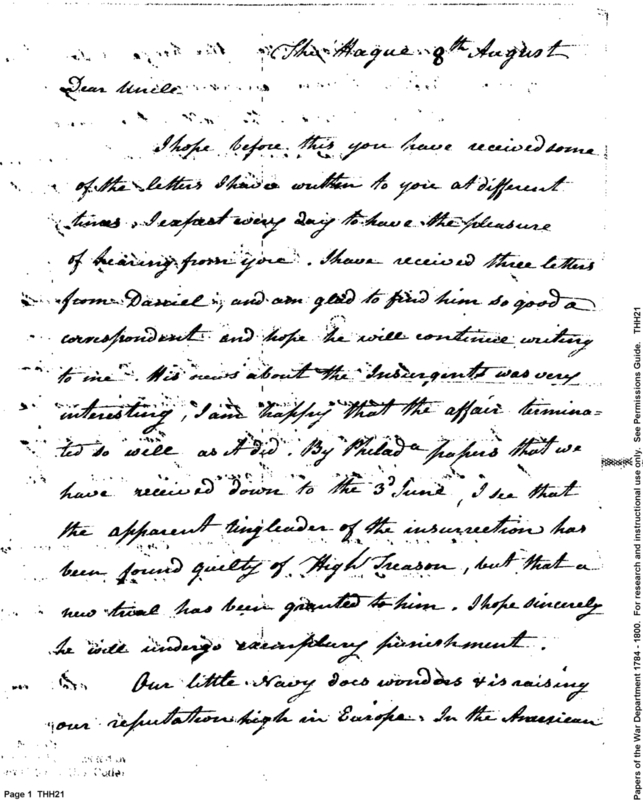 The Hague 8th August
Dear Uncle
I hope before this you have received some
of the letters I have written to you at different
times. I expect every day to have the pleasure
of hearing from you. I have received three letters
from Daniel, and am glad to find him so good a
correspondent and hope he will continue writing
to me. His news about the Insurgents was very
interesting, I am happy that the affair termina=
ted so well as it did. By Philada papers that we
have received down to the 3d June, I see that
the apparent ringleader of the insurrection has
been found guilty of High Treason, but that a
new trial has been granted to him. I hope sincerely
he will undergo exemplary punishment.
Our little Navy does wonders & is raising
our reputation high in Europe. In the American
Page 1 THH21
Papers of the War Department 1784 - 1800. For research and instructional use only. See Permissions Guide. THH21